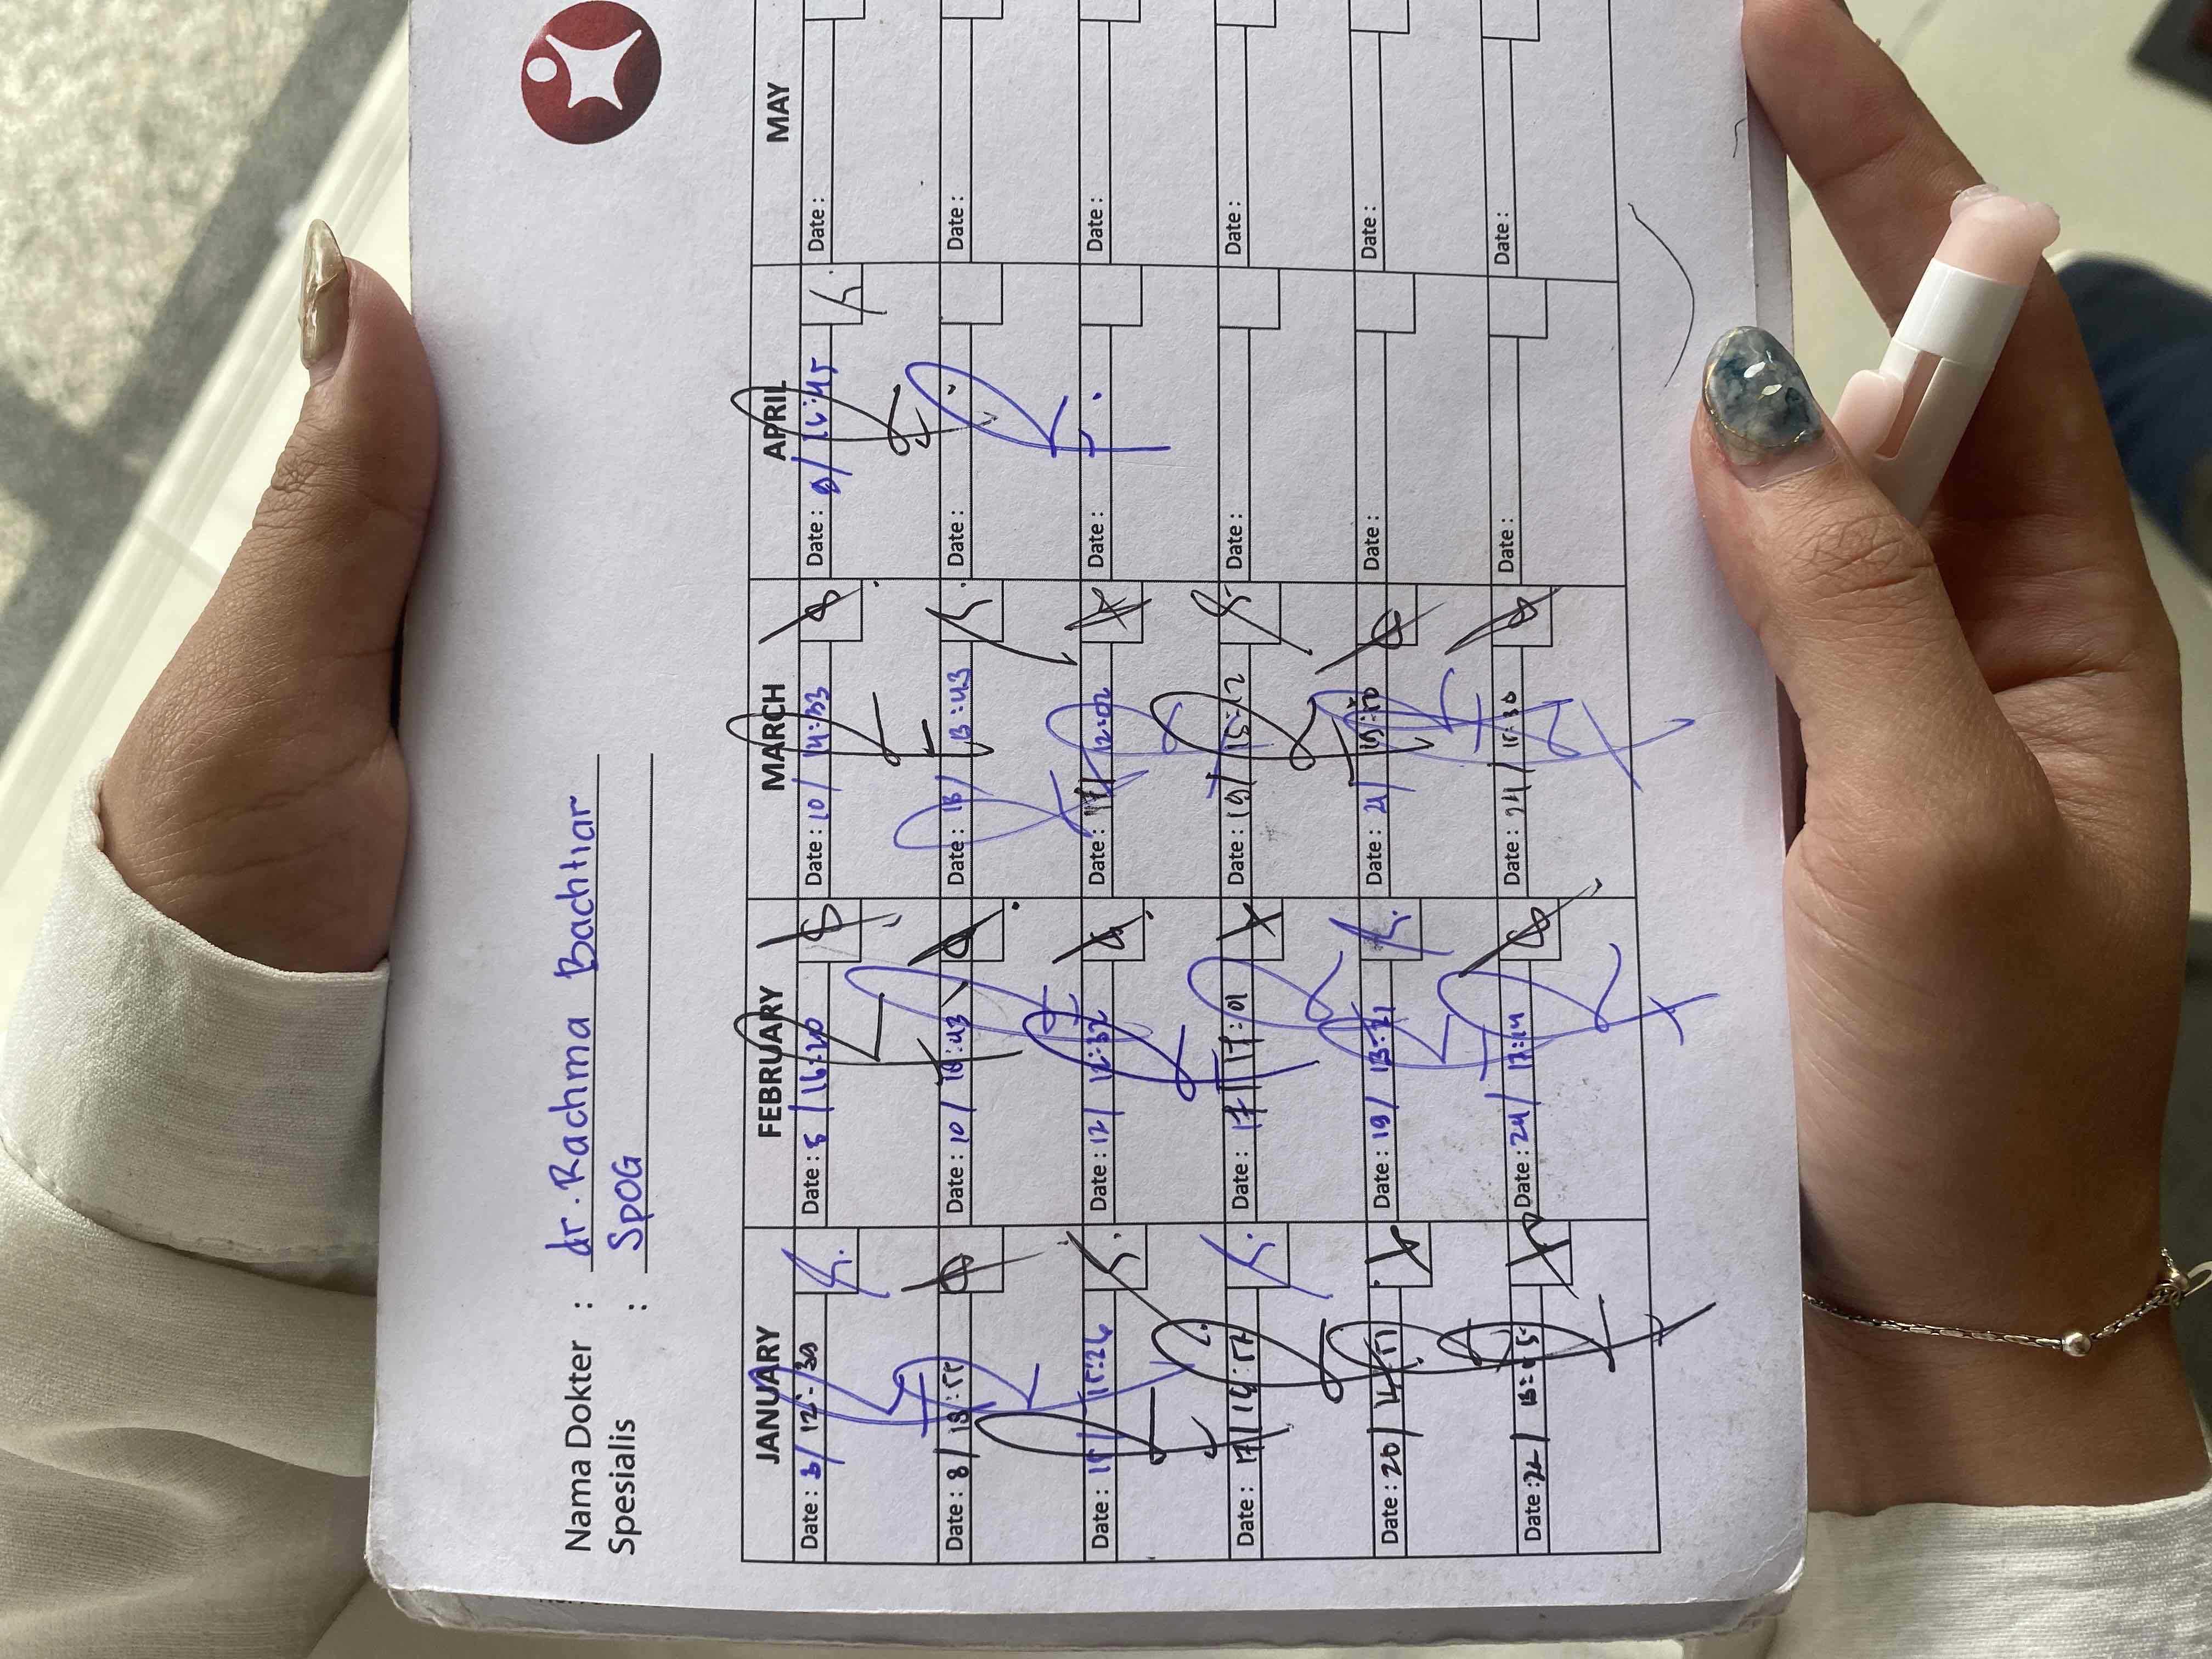 Nama Dokter : dr. Rachma Bachtiar
Spesialis : SpOG
JANUARY FEBRUARY MARCH APRIL MAY
Date: 12:30 Date: 5 / 16:20 Date: 10 / 14:33 Date: 8 / 16:45 Date:
Date: 8 / Date: 10 / Date: 13 / 13:43 Date: Date:
Date: 15 / 15:26 Date: 12 / 12:32 Date: 17 / 12:02 Date: Date:
Date: 17 / 14: Date: 17 / 17:01 Date: 19 / 15:12 Date: Date:
Date: 20 / Date: 19 / 13: Date: 21 / Date: Date:
Date: 22 / Date: 24 / 17:14 Date: 24 / Date: Date: